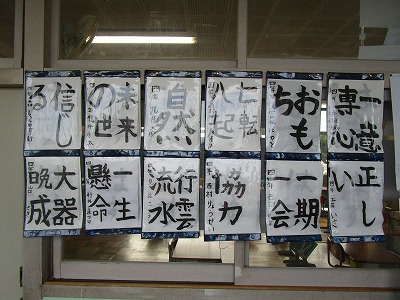 一意
専心
おも
ち
七転
八起
自然
未来
の世
信じ
る
正し
い
一期
一会
協力
行雲
流水
一生
懸命
大器
晩成